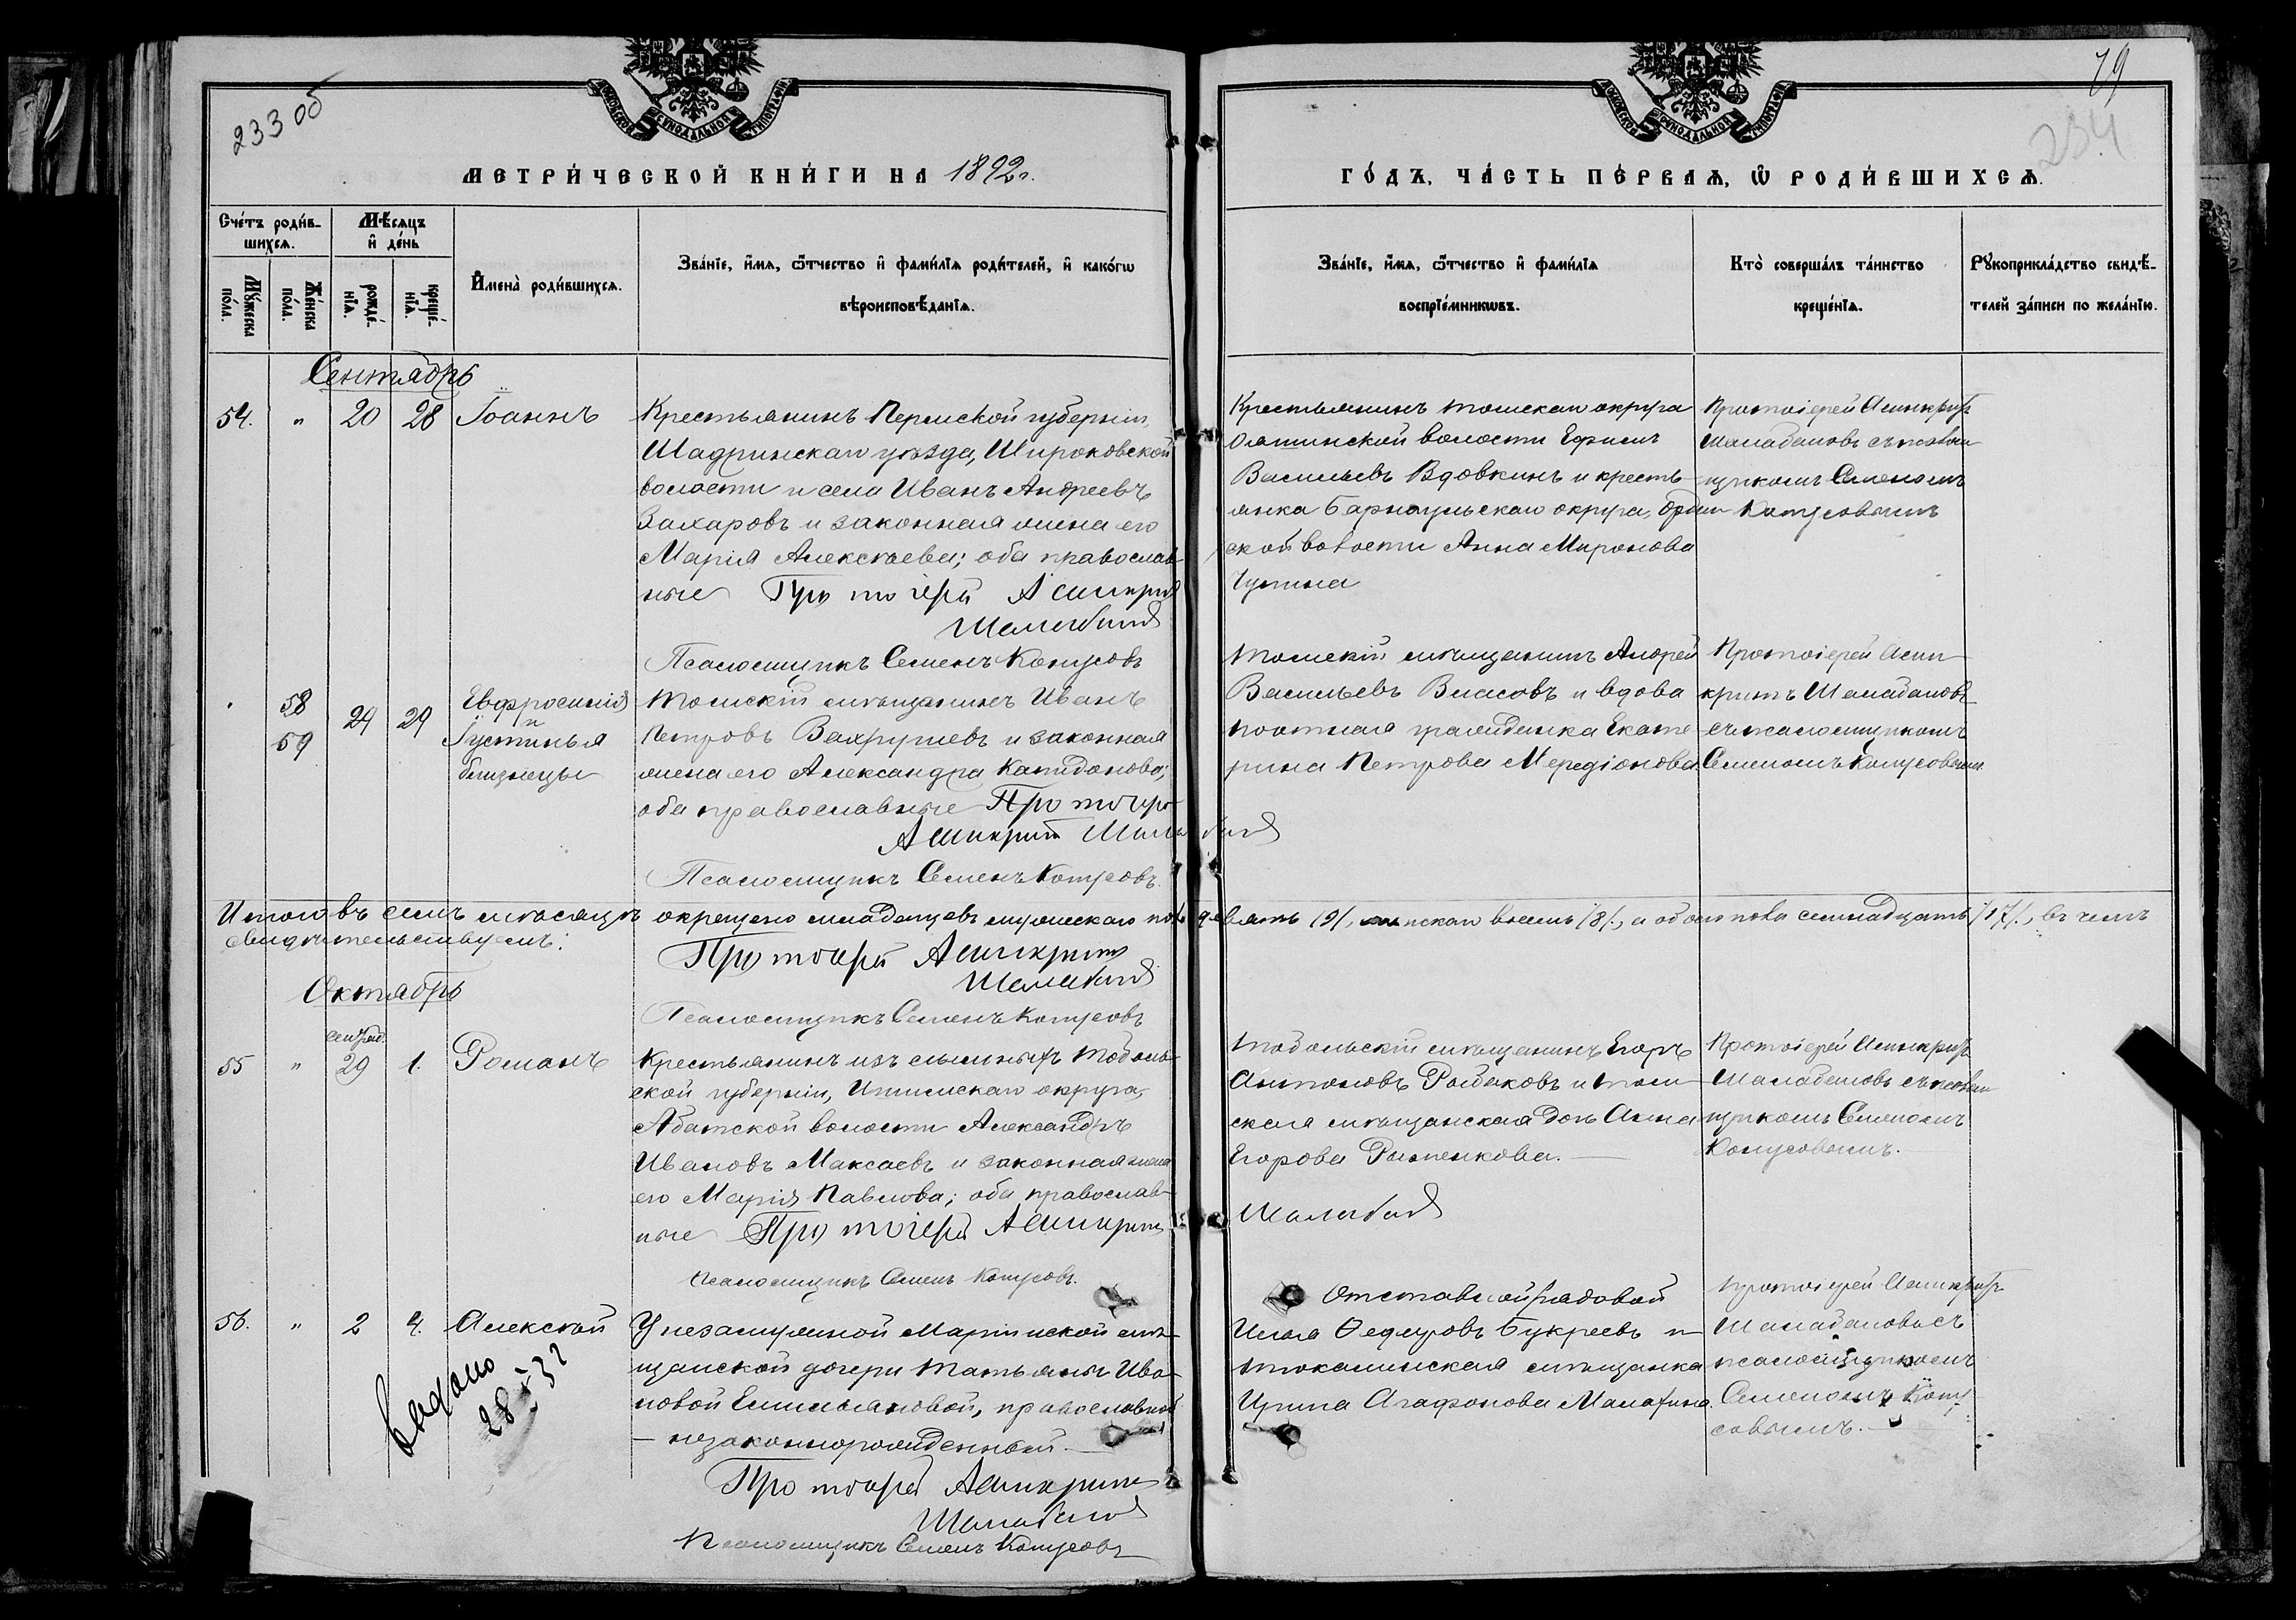 233 об
79
234
МЕТРИЧЕСКОЙ КНИГИ НА 1892 г.
ГОДЪ, ЧАСТЬ ПЕРВАЯ, Ѡ РОДИВШИХСЯ.
Счетъ родив-
шихся.
Мѣсяцъ
и день
Мужеска
пола.
Женска
пола.
рожде-
нія.
креще-
нія.
Имена родившихся.
Званіе, имя, ѿтчество и фамилія родителей, и какогѡ
вѣроисповѣданія.
Званіе, имя, ѿтчество и фамилія
воспріемникѡвъ.
Кто совершалъ таинство
крещенія.
Рукоприкладство свидѣ-
телей записи по желанію.
Сентябрь
54. " 20 28 Іоаннъ
Крестьянинъ Пермской губерніи,
Шадринскаго уѣзда, Широковской
волости и села Иванъ Андреевъ
Захаровъ и законная жена его
Марія Алексѣева; оба православ-
ные Протоіерей Асинкритъ
Шалабановъ
Псаломщикъ Семенъ Конусовъ
Крестьянинъ Томскаго округа
Ояшинской волости Ефимъ
Васильевъ Вдовкинъ и кресть-
янка Барнаульскаго округа, Ордин-
ской волости Анна Миронова
Чупина
Протоіерей Асинкритъ
Шалабановъ съ псалом-
щикомъ Семеномъ
Конусовымъ
58
59
29 29
Евфросинія
и
Іустинья
близнецы
Томскій мѣщанинъ Иванъ
Петровъ Вахрушевъ и законная
жена его Александра Капидонова;
оба православные Протоіерей
Асинкритъ Шалабановъ
Псаломщикъ Семенъ Конусовъ.
Томскій мѣщанинъ Андрей
Васильевъ Власовъ и вдова
почтная гражданка Екате-
рина Петрова Мередіонова.
Протоіерей Асин-
критъ Шалабановъ
съ псаломщикомъ
Семеномъ Конусовымъ
Итого въ семъ мѣсяцѣ окрещено младенцевъ мужескаго пола девять /9/, женскаго восемь /8/, а обоего пола семнадцать /17/, въ чемъ
свидѣтельствуемъ:
Протоіерей Асинкритъ
Шалабановъ
Псаломщикъ Семенъ Конусовъ
Октябрь
сентяб.
55 " 29 1. Романъ
Крестьянинъ изъ ссыльныхъ Тоболь-
ской губерніи, Ишимскаго округа,
Абатской волости Александръ
Ивановъ Максаевъ и законная жена
его Марія Павлова; оба православ-
ные Протоіерей Асинкритъ
Шалабановъ
Псаломщикъ Семенъ Конусовъ.
Тобольскій мѣщанинъ Егоръ
Антоновъ Рыбаковъ и Том-
ская мѣщанская дочь Анна
Егорова Рыженкова.
Протоіерей Асинкритъ
Шалабановъ съ псалом-
щикомъ Семеномъ
Конусовымъ.
56. " 2 4. Алексѣй
выдано
У незамужной Маріинской мѣ-
щанской дочери Татьяны Ива-
новой Емельяновой, православной
— незаконнорожденный. —
Протоіерей Асинкритъ
Шалабановъ
Псаломщикъ Семенъ Конусовъ
Отставной рядовой
Илья Ѳедоровъ Букреевъ и
Тюкалинская мѣщанка
Ирина Агафонова Малахина
Протоіерей Асинкритъ
Шалабановъ съ
псаломщикомъ
Семеномъ Кону-
совымъ.